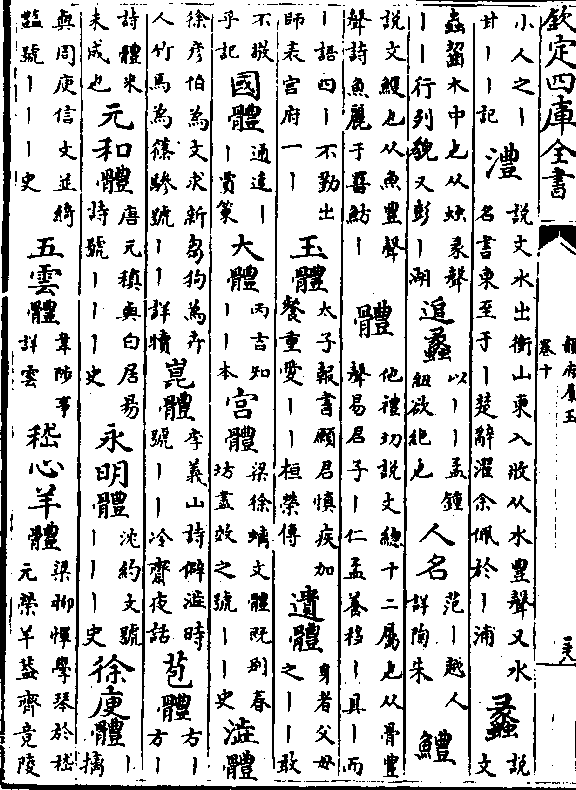 欽定四庫全書
韻府羣玉
卷十
小人之丨甘丨丨記 澧 說文水出衡山東入汝从水豐聲又水名書東至于丨楚辭濯余佩於丨浦 蠡 說文
蟲齧木中也从䖵彖聲丨丨行列貌又彭丨湖 追蠡 以丨丨孟鍾紐欲絕也 人名 范丨越人詳陶朱 鱧
說文鰻也从魚豐聲聲詩魚麗于罶魴丨 體 他禮切說文總十二屬也从骨豐聲易君子丨仁孟養移丨具丨而
丨語四丨不勤出師表宮府一丨 玉體 太子報書願君慎疾加餐重愛丨丨桓榮傳 遺體 身者父母之丨丨敢
不敬乎記 國體 通達丨丨賈策 大體 丙吉知丨丨本 宮體 梁徐摛文體既别春坊盡效之號丨丨史 澁體
徐彦伯為文求新芻狗為卉人竹馬為篠驂號丨丨詳犢 崑體 李義山詩僻澁時號丨丨冷齋夜話 苞體 方丨方丨
詩體米未成也 元和體 唐元稹與白居易詩號丨丨丨史 永明體 沈約文號丨丨丨史 徐庾體 丨摛
與周庾信文並綺豔號丨丨丨史 五雲體 韋陟事詳雲 嵇心羊體 梁柳惲學琴於嵇元榮羊葢齊竟陵